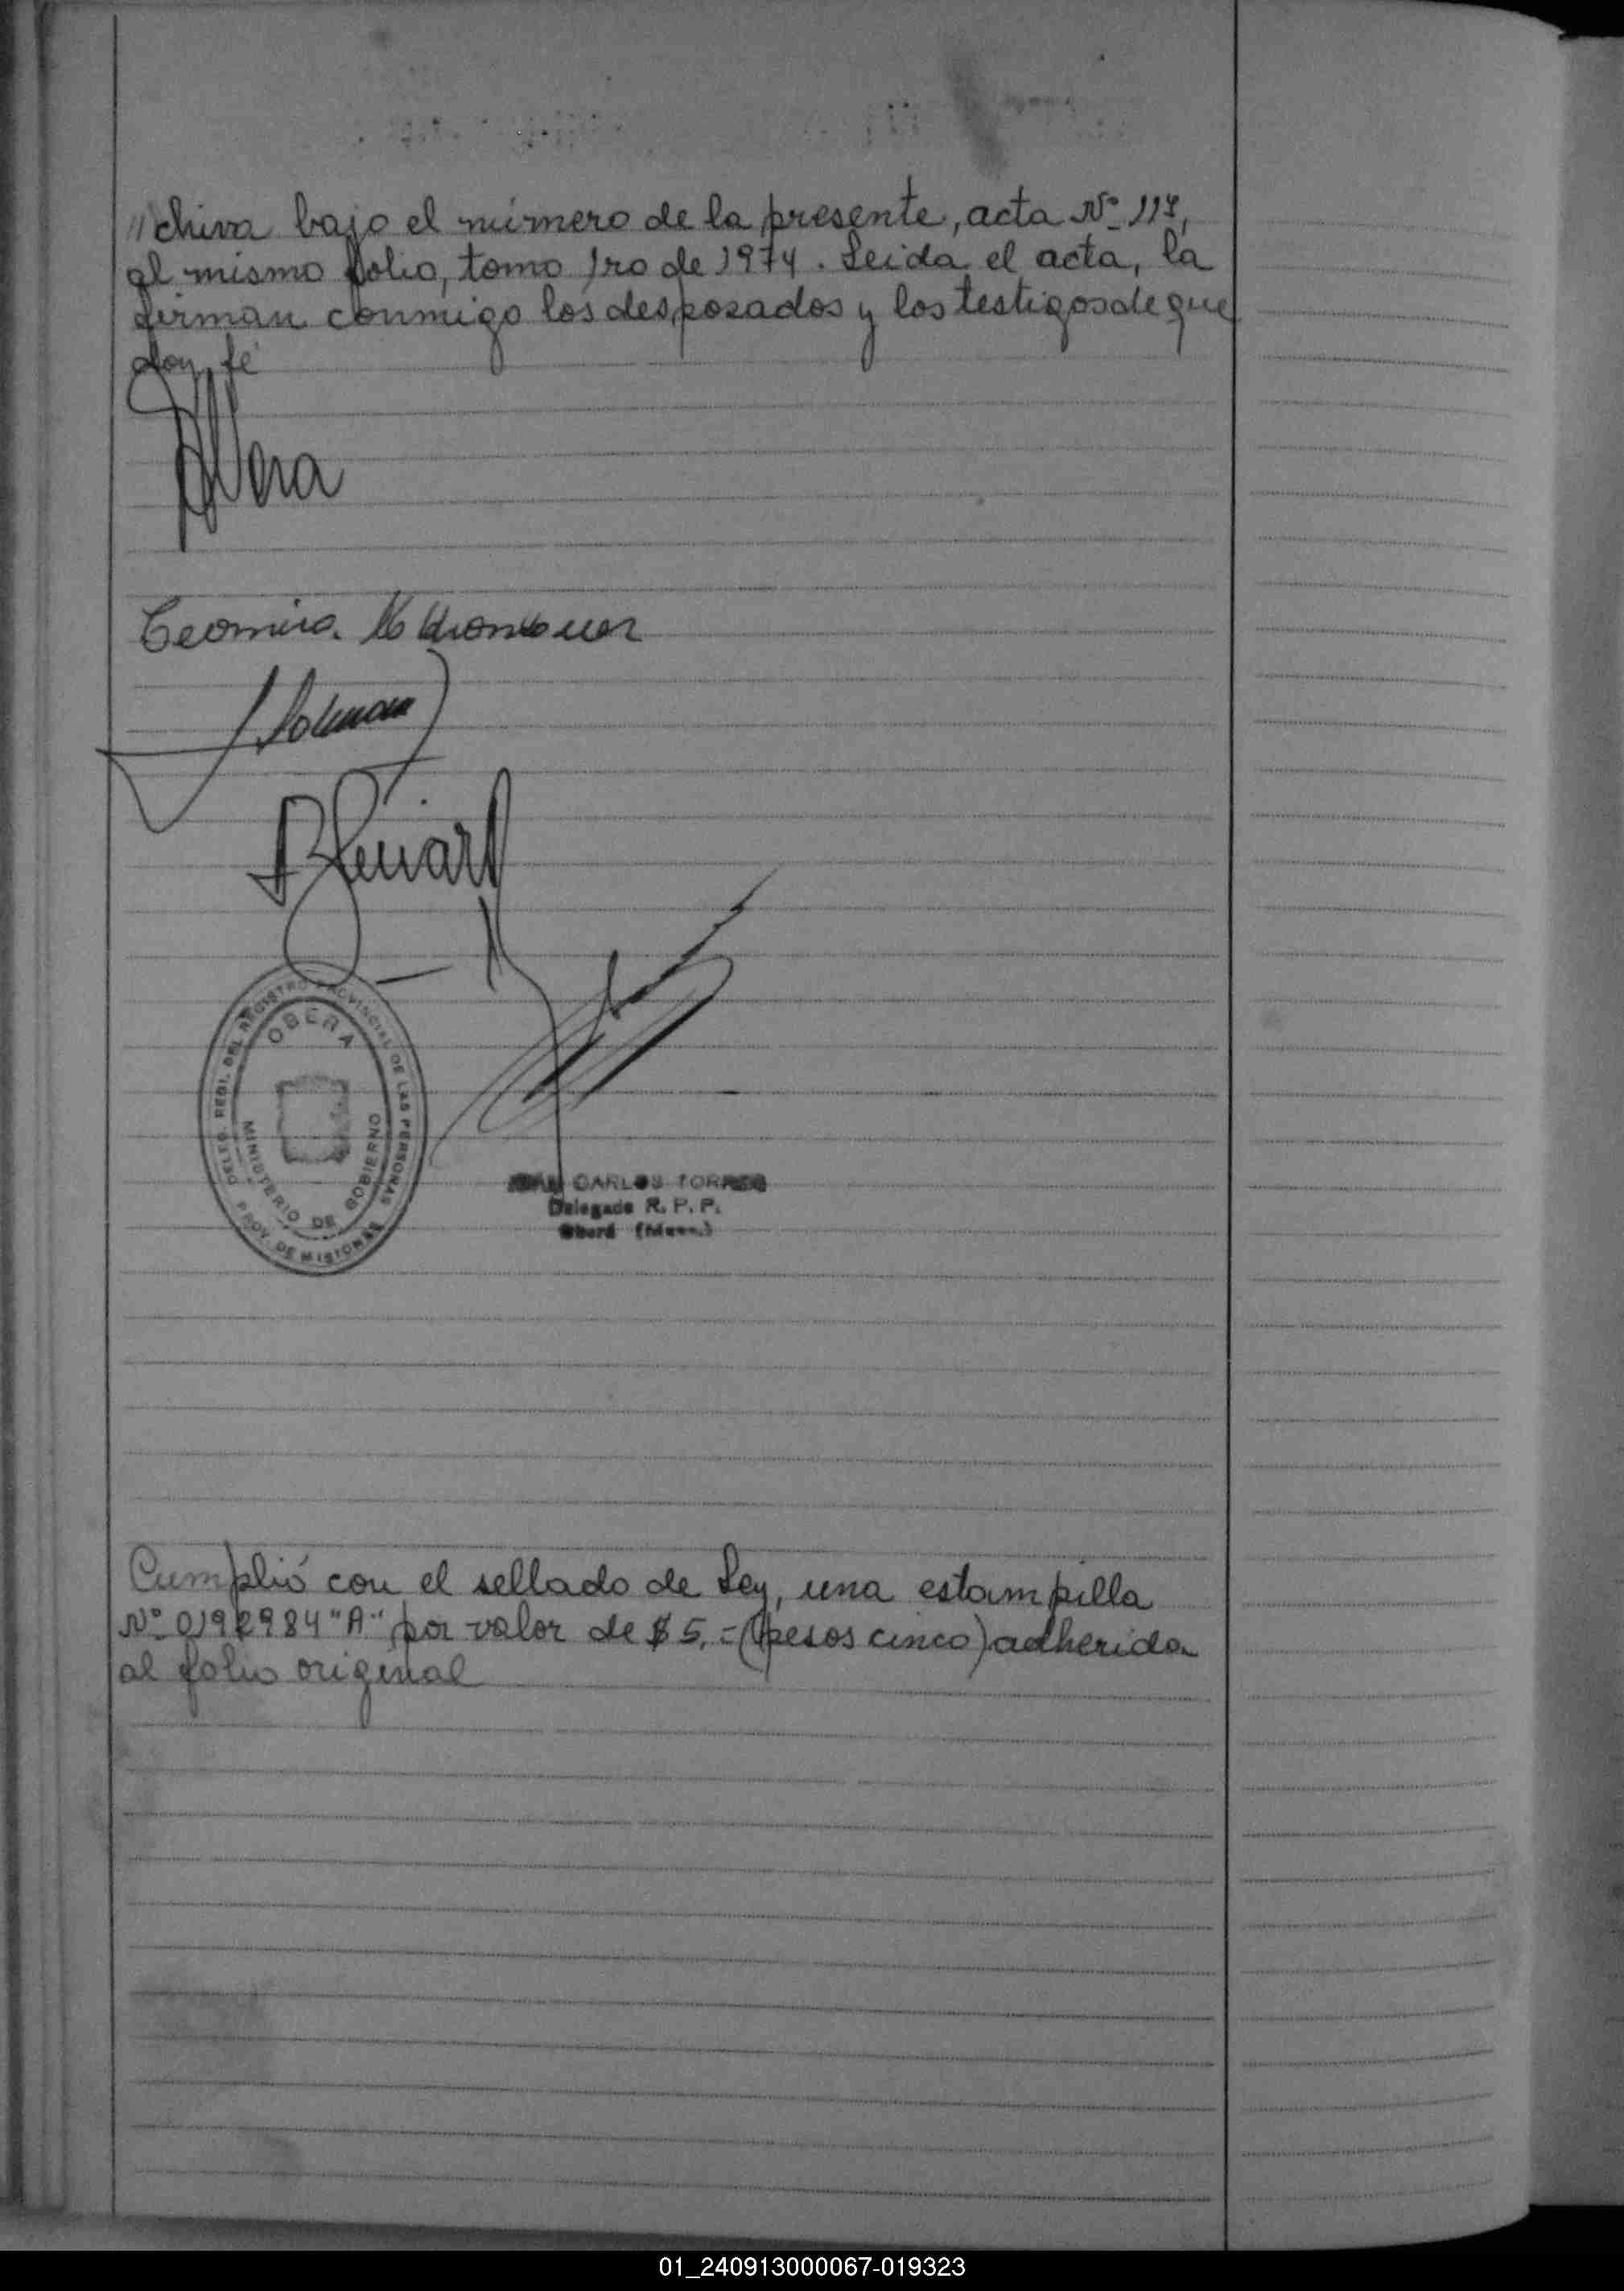 // chiva bajo el número de la presente, acta Nº 117,
al mismo folio, tomo 1ro de 1974. Leida el acta, la
firman conmigo los desposados y los testigos de que
doy fé
OBERA
DELEG. REGI. DEL REGISTRO PROVINCIAL DE LAS PERSONAS
MINISTERIO DE GOBIERNO
PROV. DE MISIONES
JUAN CARLOS TORRES
Delegado R. P. P.
Oberá (Mnes.)
Cumplió con el sellado de Ley, una estampilla
Nº 0192984 "A" por valor de $ 5,= (pesos cinco) adherida
al folio original
01_240913000067-019323